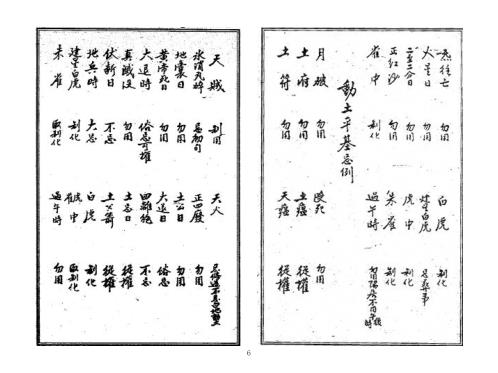 炁往亡 勿用 白虎 制化
火星日 勿用 建星白虎 忌葬事
二至二分日 勿用 虎中 制化
正紅沙 勿用 朱雀 制化
雀中 制化 過午時 勿用
動土平基忌例
月破 勿用 勿用
土府 勿用 土瘟 從權
土符 勿用 天瘟 從權
天賊 制用 天火 忌修造不忌白地動土
冰消瓦碎 忌初旬 正四廢 勿用
地囊日 勿用 土公日 勿用
黃帝死 勿用 大退日 俗忌
大退時 俗忌可權 四離絕 不忌
真滅沒 勿用 土忌日 從權
伏斷日 不忌 土公箭 從權
地兵時 大忌 白虎 制化
建星白虎 制化 虎中 取制化
朱雀 取制化 過午時 勿用
6